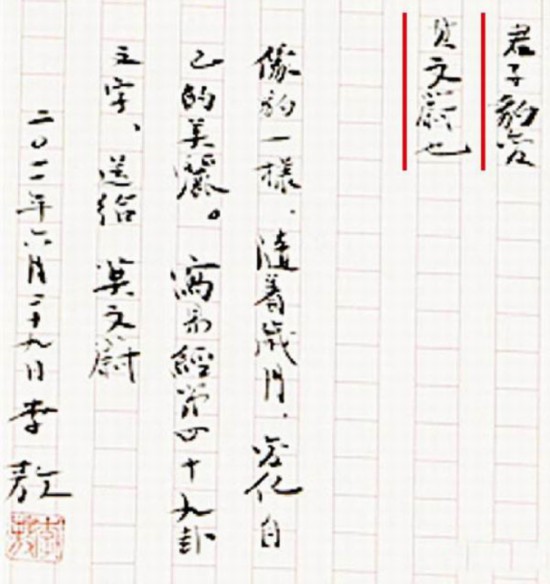 君子豹变
其文蔚也
像豹一樣、隨著歲月、变化自
己的美麗。寫易經第四十九卦
之字、送給莫文蔚
二〇一一年六月二十九日李敖
李敖